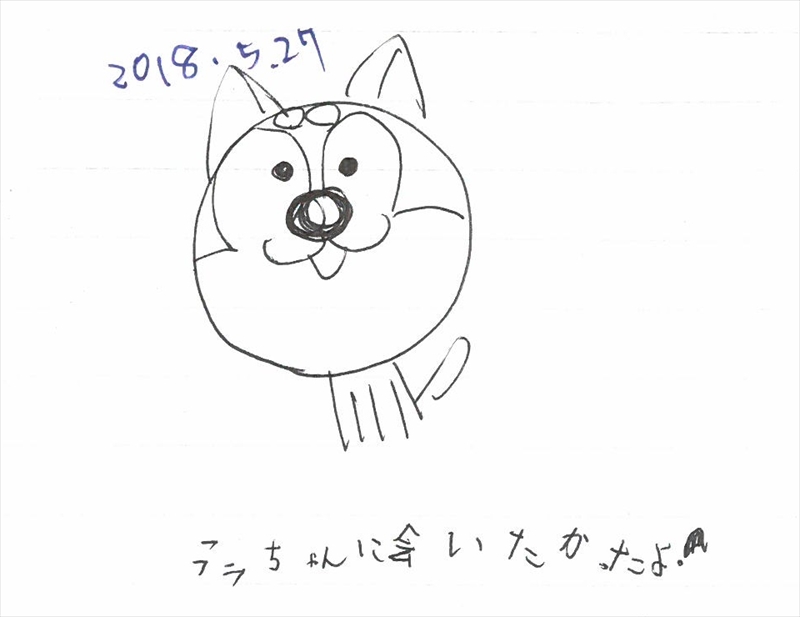 2018.5.27
ララちゃんに会いたかったよ.